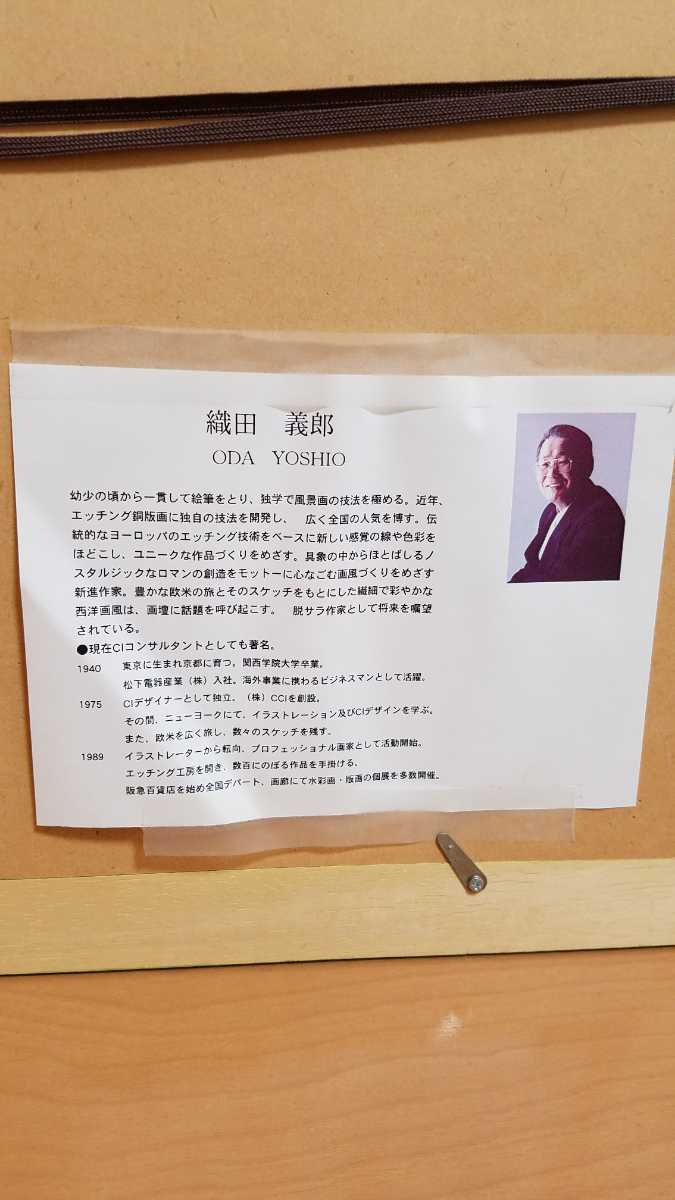 織田　義郎
ODA　YOSHIO
幼少の頃から一貫して絵筆をとり、独学で風景画の技法を極める。近年、
エッチング銅版画に独自の技法を開発し、　広く全国の人気を博す。伝
統的なヨーロッパのエッチング技術をベースに新しい感覚の線や色彩を
ほどこし、ユニークな作品づくりをめざす。具象の中からほとばしるノ
スタルジックなロマンの創造をモットーに心なごむ画風づくりをめざす
新進作家。豊かな欧米の旅とそのスケッチをもとにした繊細で彩やかな
西洋画風は、画壇に話題を呼び起こす。　脱サラ作家として将来を嘱望
されている。
●現在CIコンサルタントとしても著名。
1940　東京に生まれ京都に育つ。関西学院大学卒業。
松下電器産業（株）入社。海外事業に携わるビジネスマンとして活躍。
1975　CIデザイナーとして独立。（株）CCIを創設。
その間、ニューヨークにて、イラストレーション及びCIデザインを学ぶ。
また、欧米を広く旅し、数々のスケッチを残す。
1989　イラストレーターから転向、プロフェッショナル画家として活動開始。
エッチング工房を開き、数百にのぼる作品を手掛ける、
阪急百貨店を始め全国デパート、画廊にて水彩画・版画の個展を多数開催。